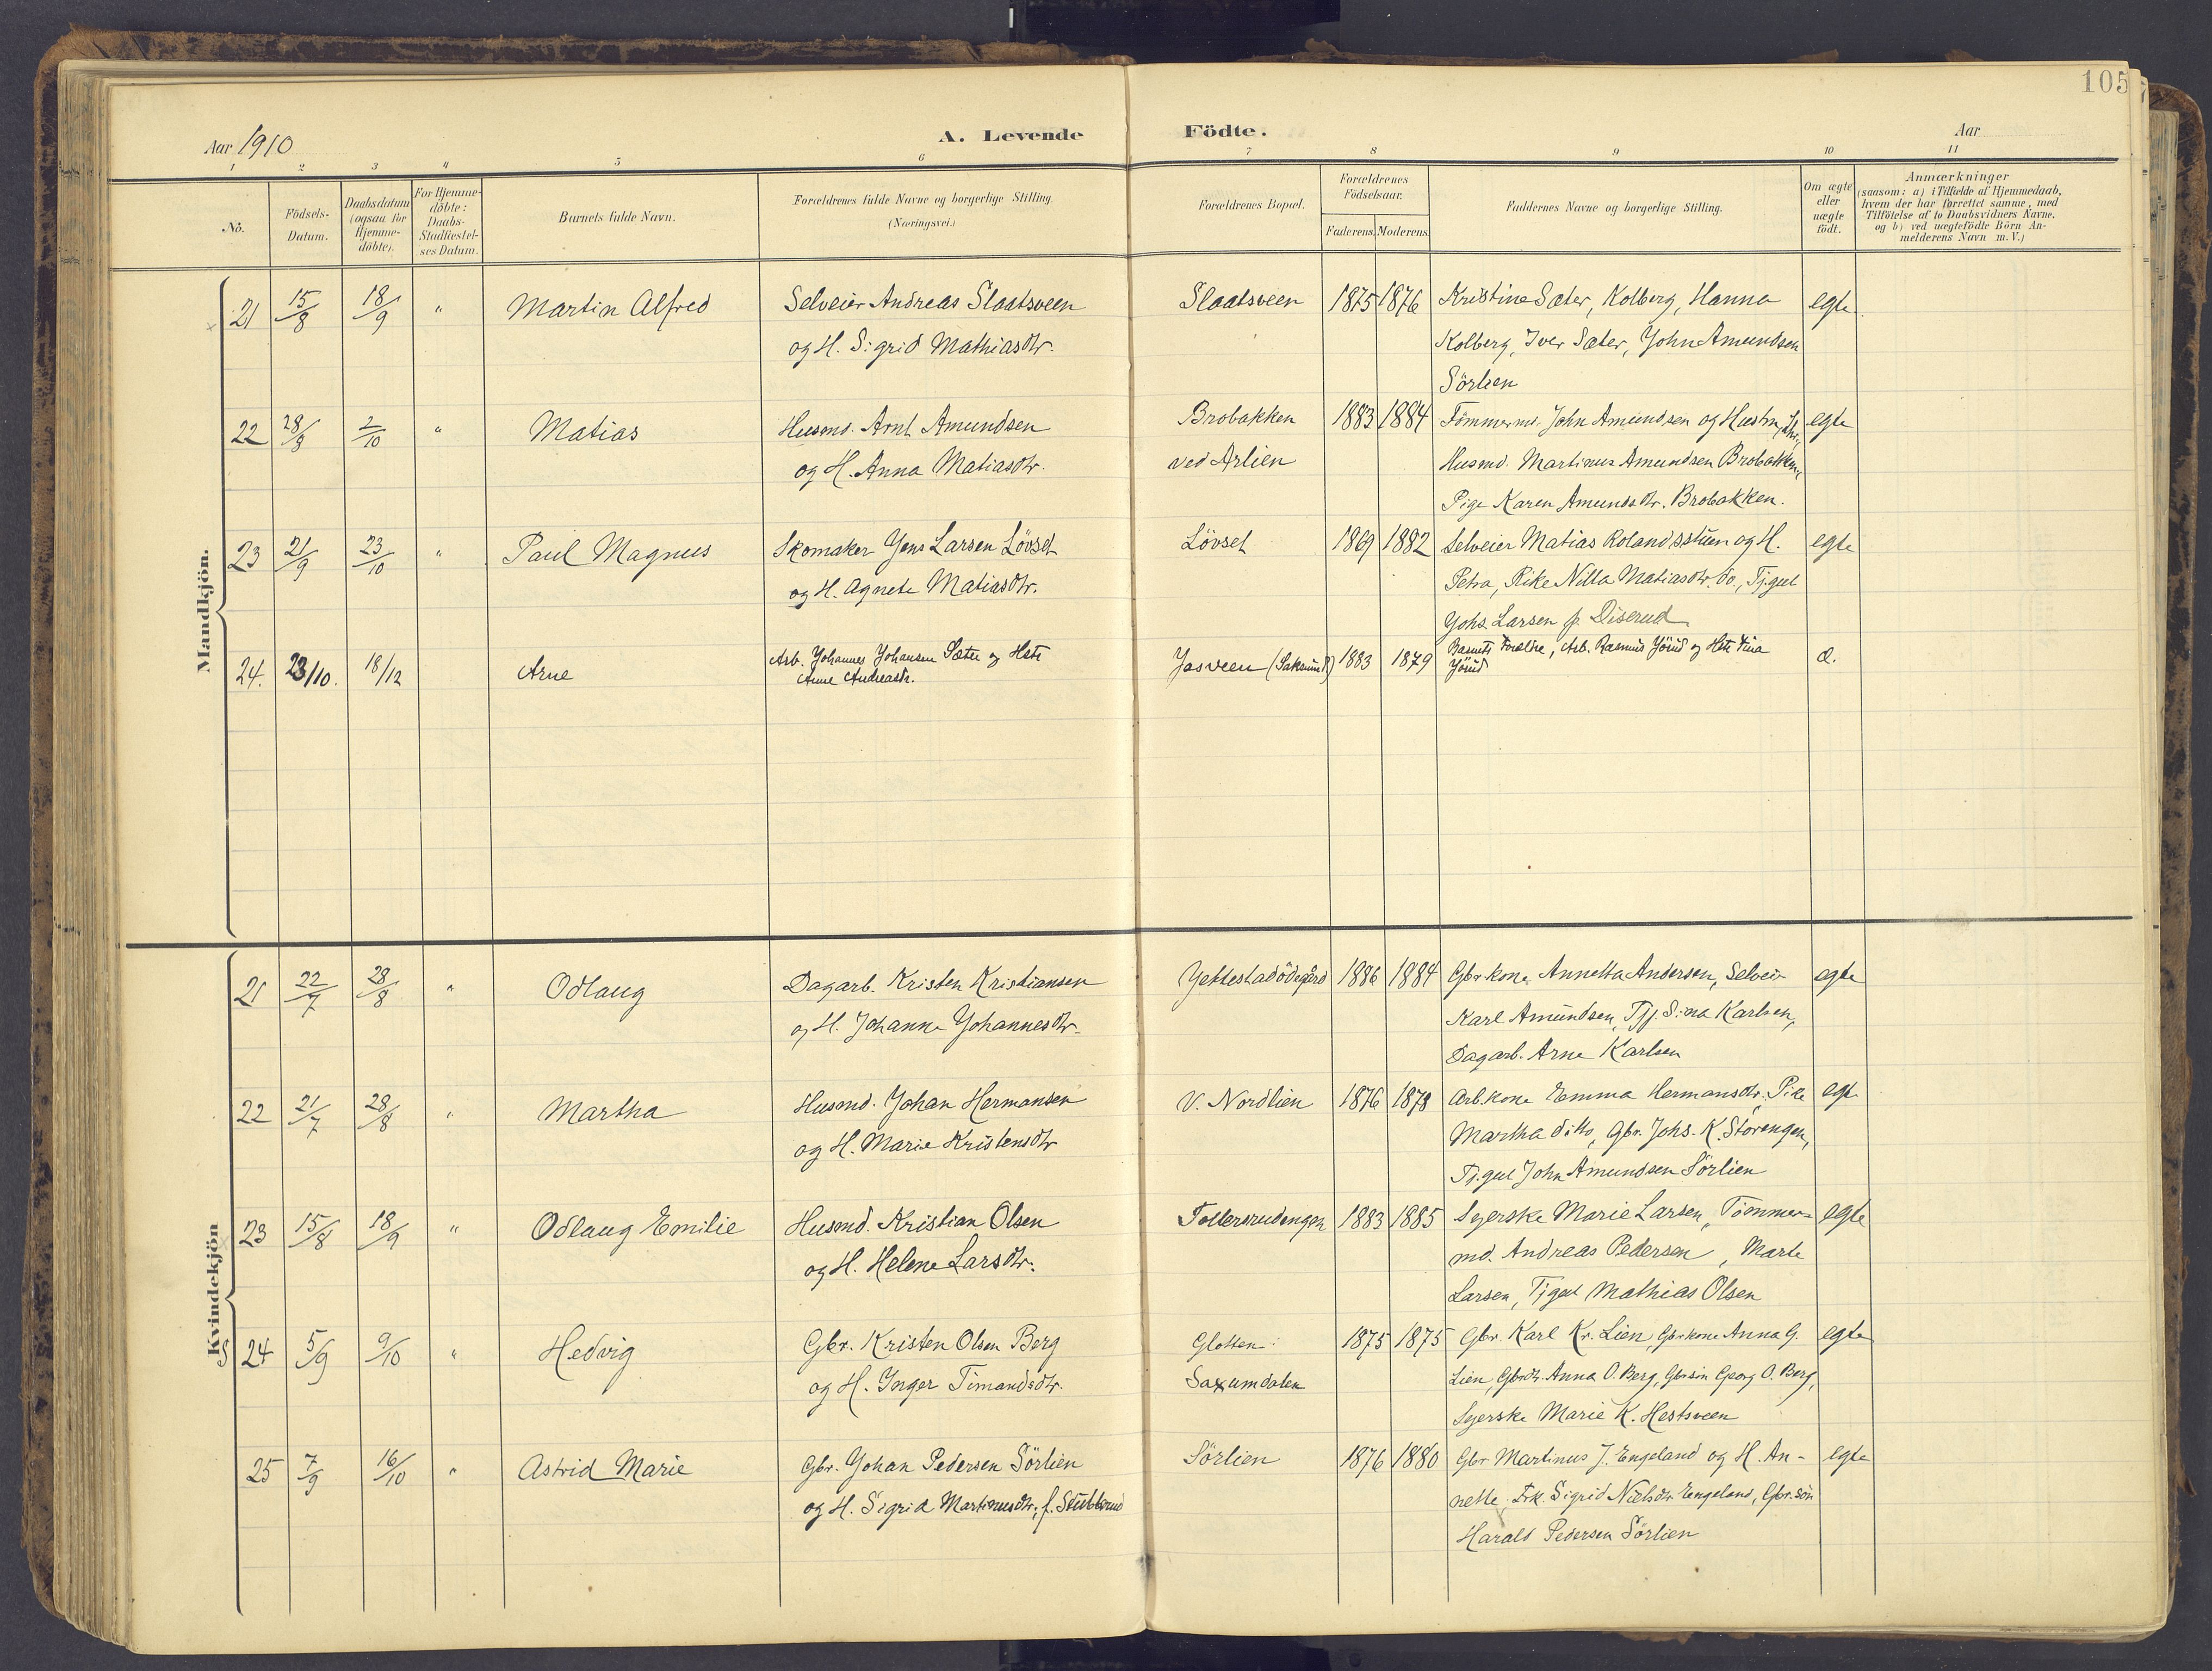 105
Aar 1910
A. Levende Födte.
Aar
1 2 3 4 5 6 7 8 9 10 11
No.
Födsels-
Datum.
Daabsdatum
(ogsaa för
Hjemme-
döbte).
For Hjemme-
döbte:
Daabs-
Stadfæstel-
ses Datum.
Barnets fulde Navn.
Forældrenes fulde Navne og borgerlige Stilling.
(Næringsvei.)
Forældrenes Bopæl.
Forældrenes
Födselsaar.
Faderens. Moderens.
Faddernes Navne og borgerlige Stilling.
Om ægte
eller
uægte
födt.
Anmærkninger
(saasom: a) i Tilfælde af Hjemmedaab,
hvem der har forrettet samme, med
Tilföielse af to Daabsvidners Navne,
og b) ved uægtefödte Börn An-
melderens Navn m. V.)
Mandkjön.
21 15/8 18/9 " Martin Alfred Selveier Andreas Slaatsveen Slaatsveen 1875 1876 Kristine Sæter, Kolberg, Hanna egte
og H. Sigrid Mathiasdtr. Kolberg, Iver Sæter, John Amundsen
Sörlien
22 28/8 2/10 " Matias Husmd. Arnt Amundsen Brobakken 1883 1884 Tömmermd. John Amundsen og Hustru, egte
og H. Anna Matiasdtr. ved Arlien Husmd. Martinus Amundsen Brobakken,
Pige Karen Amundsdtr. Brobakken.
23 21/9 23/10 " Paul Magnus Skomaker Jens Larsen Lövset Lövset 1869 1882 Selveier Matias Rolandsstuen og H. egte
og H. Agnete Matiasdtr. Petra, Pike Nilla Matiasdtr. do, Tj.gut
Johs. Larsen p. Diserud
24. 23/10. 18/12 Arne Arb. Johannes Johansen Sæter og Hstr Josveen (Saksumd.) 1883 1879 Barnets Forældre, Arb. Rasmus Jörud og Hstr Tina æ.
Anne Andreasdr. Jörud
Kvindekjön
21 22/7 28/8 " Odlaug Dagarb. Kristen Kristiansen Jettestadödegård 1886 1884 Gbr.kone Annetta Andersen, Selvei- egte
og H. Johanne Johannesdtr. Karl Amundsen, Tj. Sina Karlsen,
Dagarb. Arne Karlsen
22 21/7 28/8 " Martha Husmd. Johan Hermansen V. Nordlien 1876 1878 Arb.kone Emma Hermansdtr. Pike egte
og H. Marie Kristensdtr Martha ditto, Gbr. Johs. K. Storengen,
Tj.gut John Amundsen Sörlien
23 15/8 18/9 " Odlaug Emilie Husmd. Kristian Olsen Tollersrudengen 1883 1885 Syerske Marie Larsen, Tömmer- egte
og H. Helene Larsdtr. md. Andreas Pedersen, Marte
Larsen, Tjgut Mathias Olsen
24 5/9 9/10 " Hedvig Gbr. Kristen Olsen Berg Glotten: 1875 1875 Gbr. Karl Kr. Lien, Gbrkone Anna G. egte
og H. Inger Timandsdtr. Saxumdalen Lien, Gbrdtr. Anna O. Berg, Gbrsön Georg O. Berg,
Syerske Marie K. Hestsveen
25 7/9 16/10 " Astrid Marie Gbr. Johan Pedersen Sörlien Sörlien 1876 1880 Gbr Martinus J. Engeland og H. An- egte
og H. Sigrid Martinusdtr., f. Stubberud nette, Frk. Sigrid Nielsdtr Engeland, Gbr.sön
Harald Pedersen Sörlien